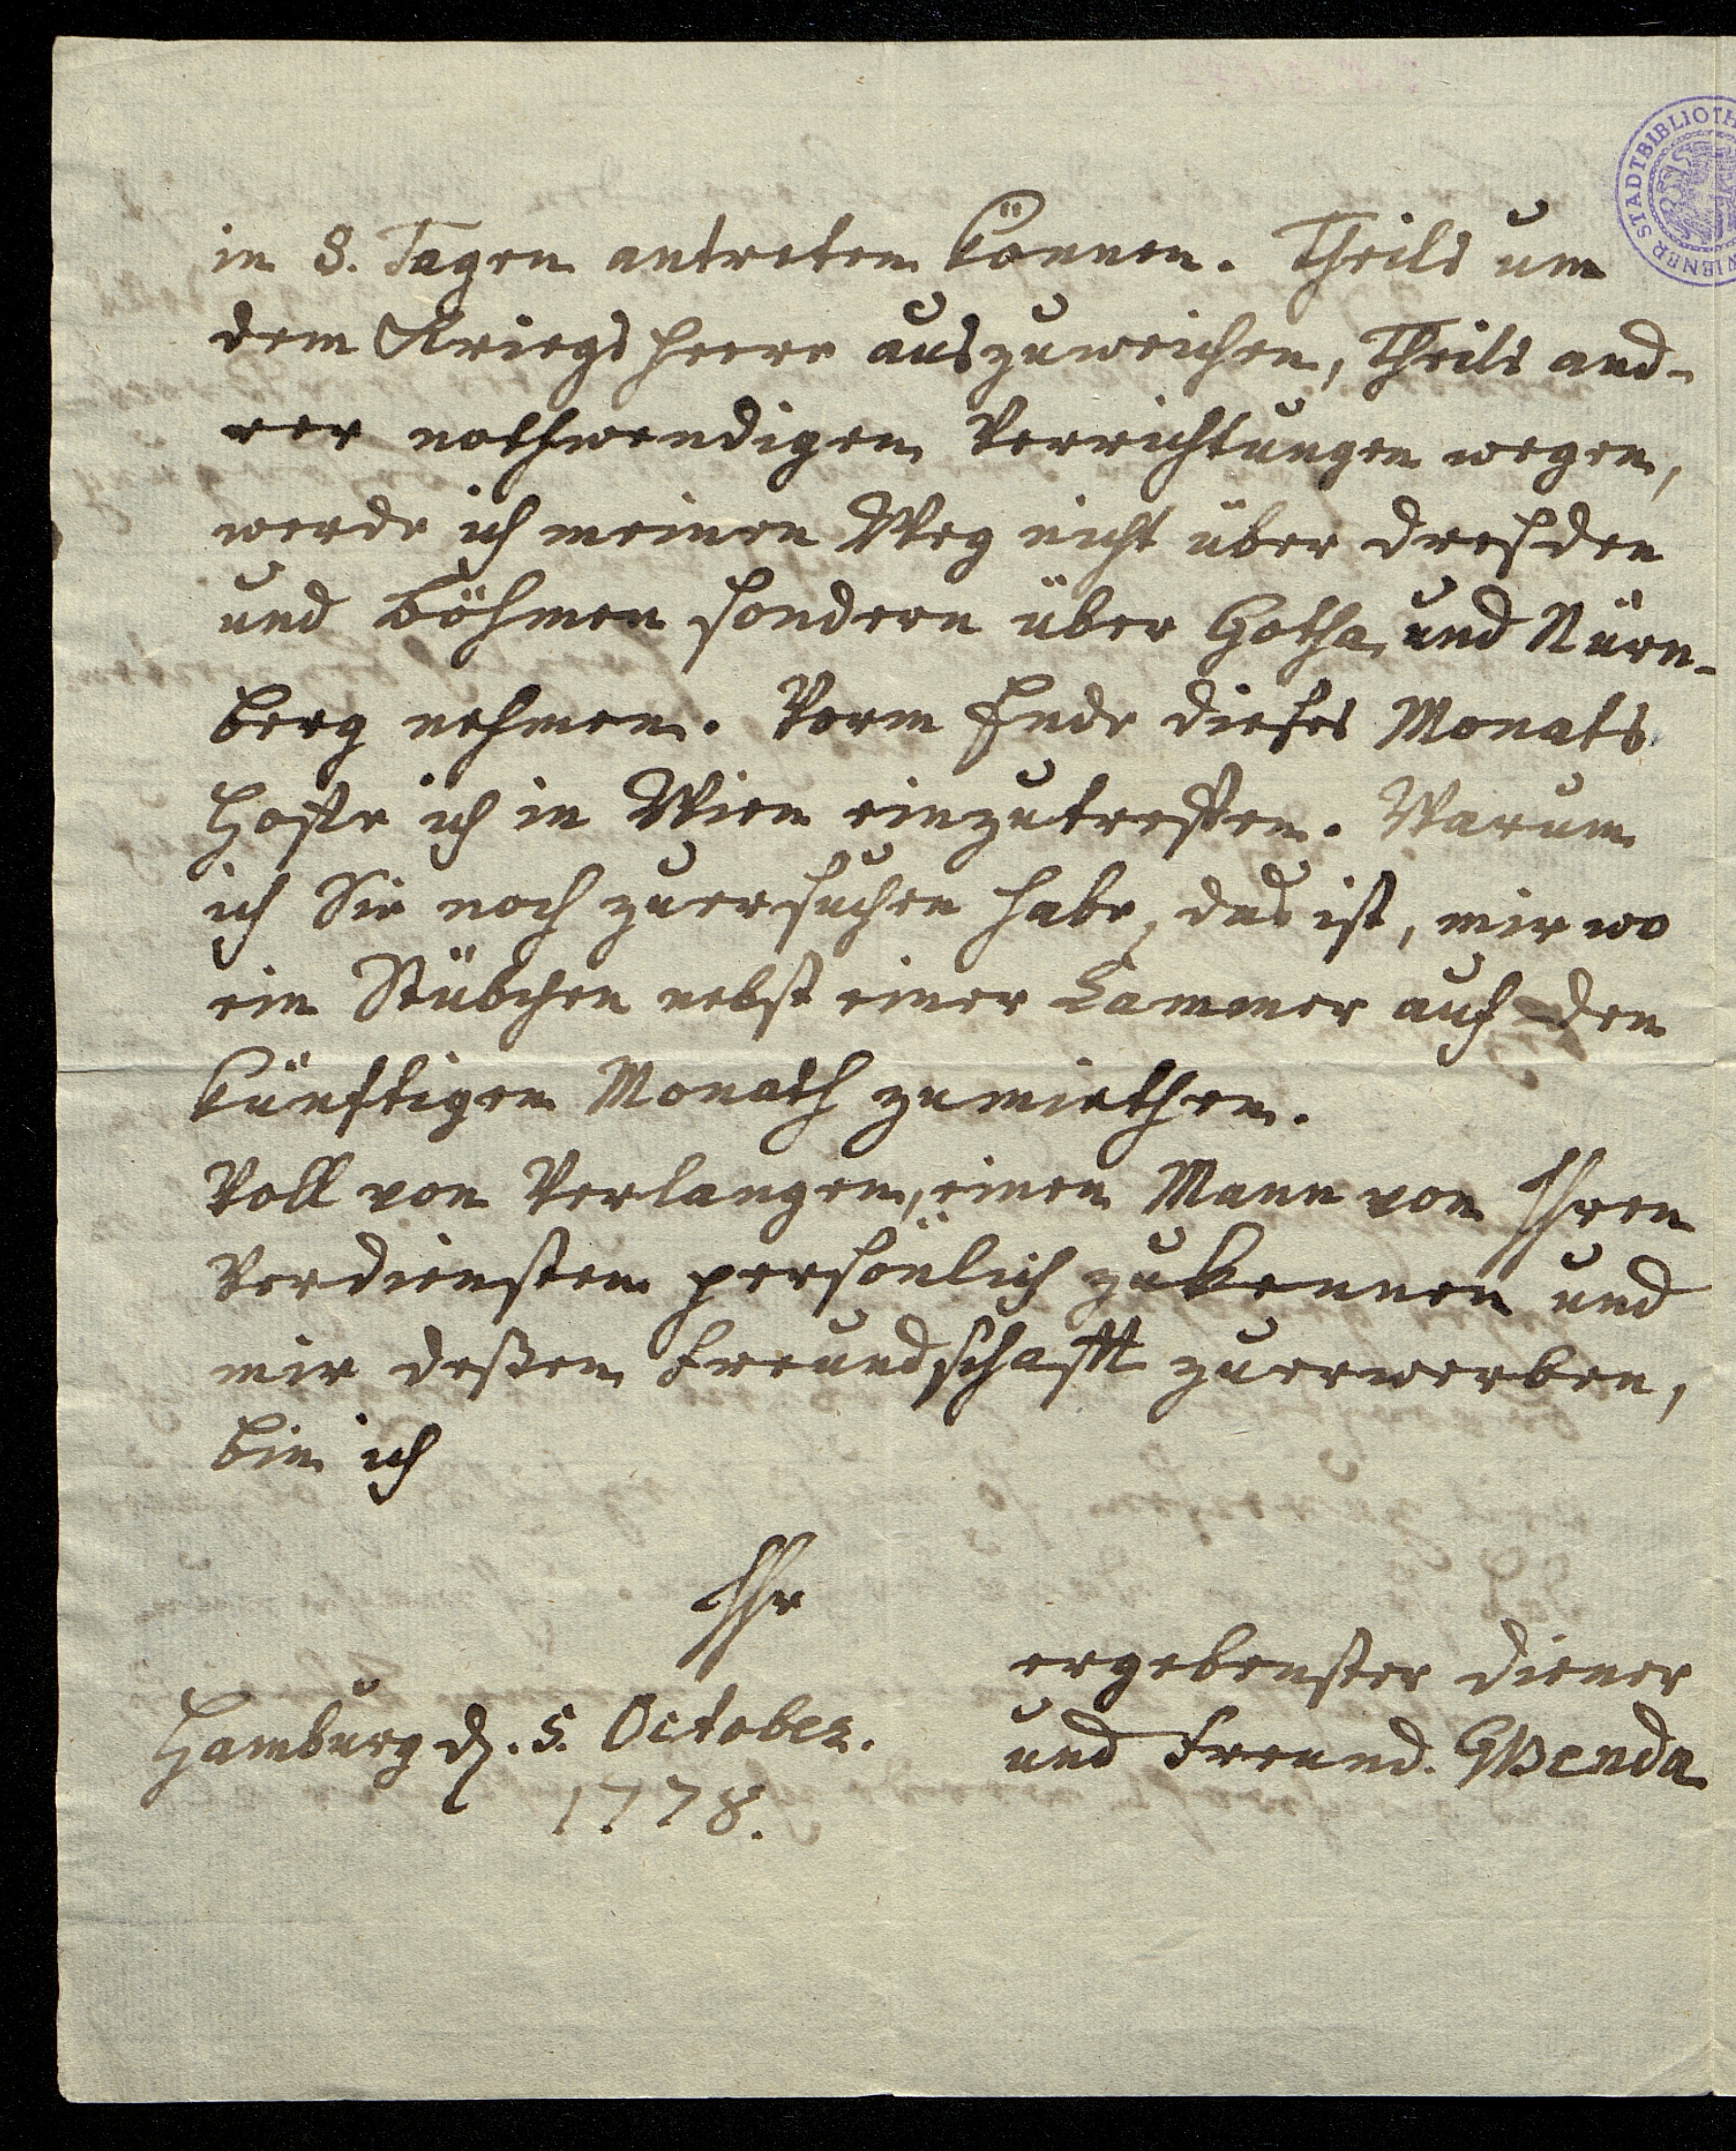 in 8. Tagen antreten können. Theils um
dem Kriegs Heere auszuweichen, Theils and-
rer nothwendigen Verrichtungen wegen,
werde ich meinen Weg nicht über Dresden
und Böhmen sondern über Gotha und Nürn-
berg nehmen. Vorm Ende dieses Monats
Hoffe ich in Wien einzutreffen. Warum
ich Sie noch zuersuchen habe, das ist, mir wo
ein Stübchen nebst einer Kammer auf den
künftigen Monath zumiethen.
Voll von Verlangen, einen Mann von Ihren
Verdiensten persönlich zukennen und
mir deßen Freundschafft zuerwerben,
bin ich
Ihr
ergebenster Diener
und Freund. GBenda
Hamburg d. 5. October.
1778.
WIENER STADTBIBLIOTH